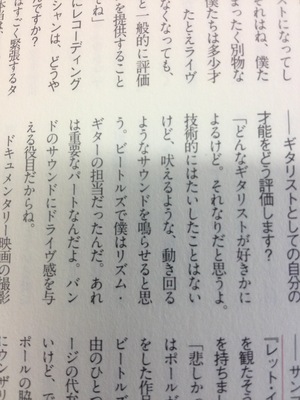 ストになってし
それはね 僕た
まったく別物な
僕たちは多少才
たとえライヴ
なくなっても、
と一般的に評価
を提供すること
てね」
にレコーディング
シャンは、どうや
ですか?
はすごく緊張するタ
――ギタリストとしての自分の
才能をどう評価します?
「どんなギタリストが好きかに
よるけど。それなりだと思うよ。
技術的にはたいしたことはない
けど、吠えるような、動き回る
ようなサウンドを鳴らせると思
う。ビートルズで僕はリズム・
ギターの担当だったんだ。あれ
は重要なパートなんだよ。バン
ドのサウンドにドライヴ感を与
える役目だからね。
ドキュメンタリー映画の撮影
『レット・イ
を観たそう
を持ちま
「悲しかっ
はポールが
をした作品
ビートルズ
由のひとつ
ージの代か
いけど、で
ポールの脇
にウンザリ